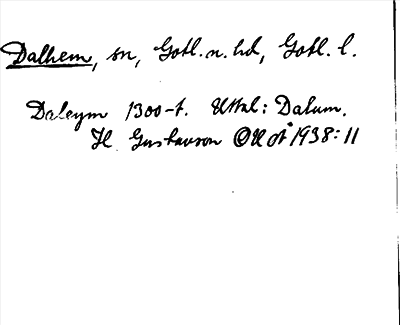 Dalhem, sn, Gotl. n. hd, Gotl. l.
Daleym 1300-t. Uttal: Dalum.
H. Gustavson OUOÅ 1938: 11